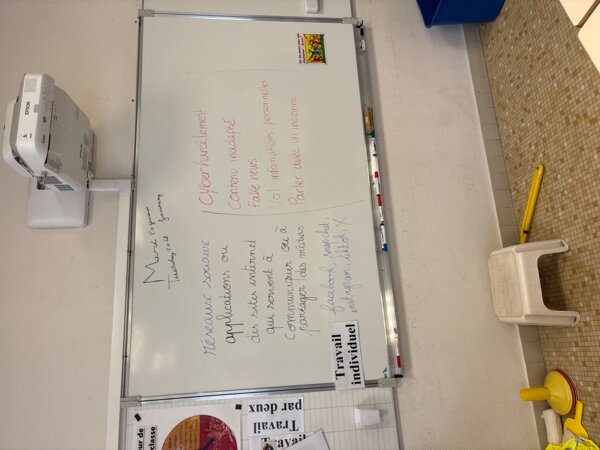 Mardi 20 janvier
Tuesday 20th January
réseaux sociaux
applications ou
des sites internet
qui servent à
communiquer ou à
partager des médias
facebook, snapchat,
instagram, tiktok, X
Cyberharcèlement
Contenu inadapté
Fake news
Vol informations personnelles
Parler avec un inconnu
Travail
individuel
Travail
par deux
EPSON